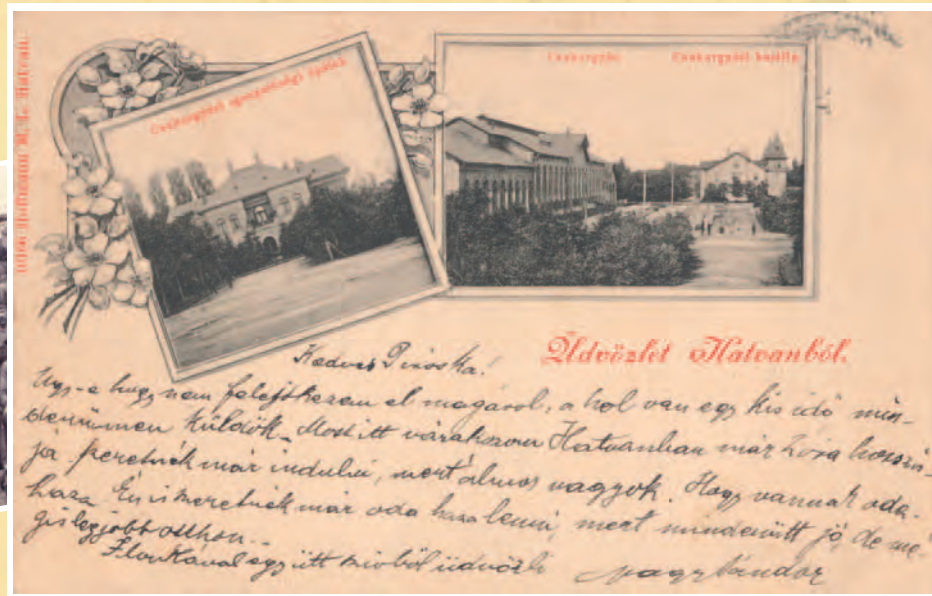 Cukorgyári igazgatósági épület
Cukorgyár.
Cukorgyári kastély
Hoffmann M. L. Hatvan.
Üdvözlet Hatvanból.
Kedves Piroska!
Ugy-e hogy nem felejtkezem el magáról, a hol van egy kis idő min-
denünnen küldök. Most itt várakozom Hatvanban már 2 óra hosszá-
ja szeretnék már indulni, mert álmos vagyok. Hogy vannak oda-
haza. Én is szeretnék már oda haza lenni, mert mindenütt jó, de mé-
gis legjobb otthon.
Ilonkával együtt szivből üdvözli Nagy Sándor